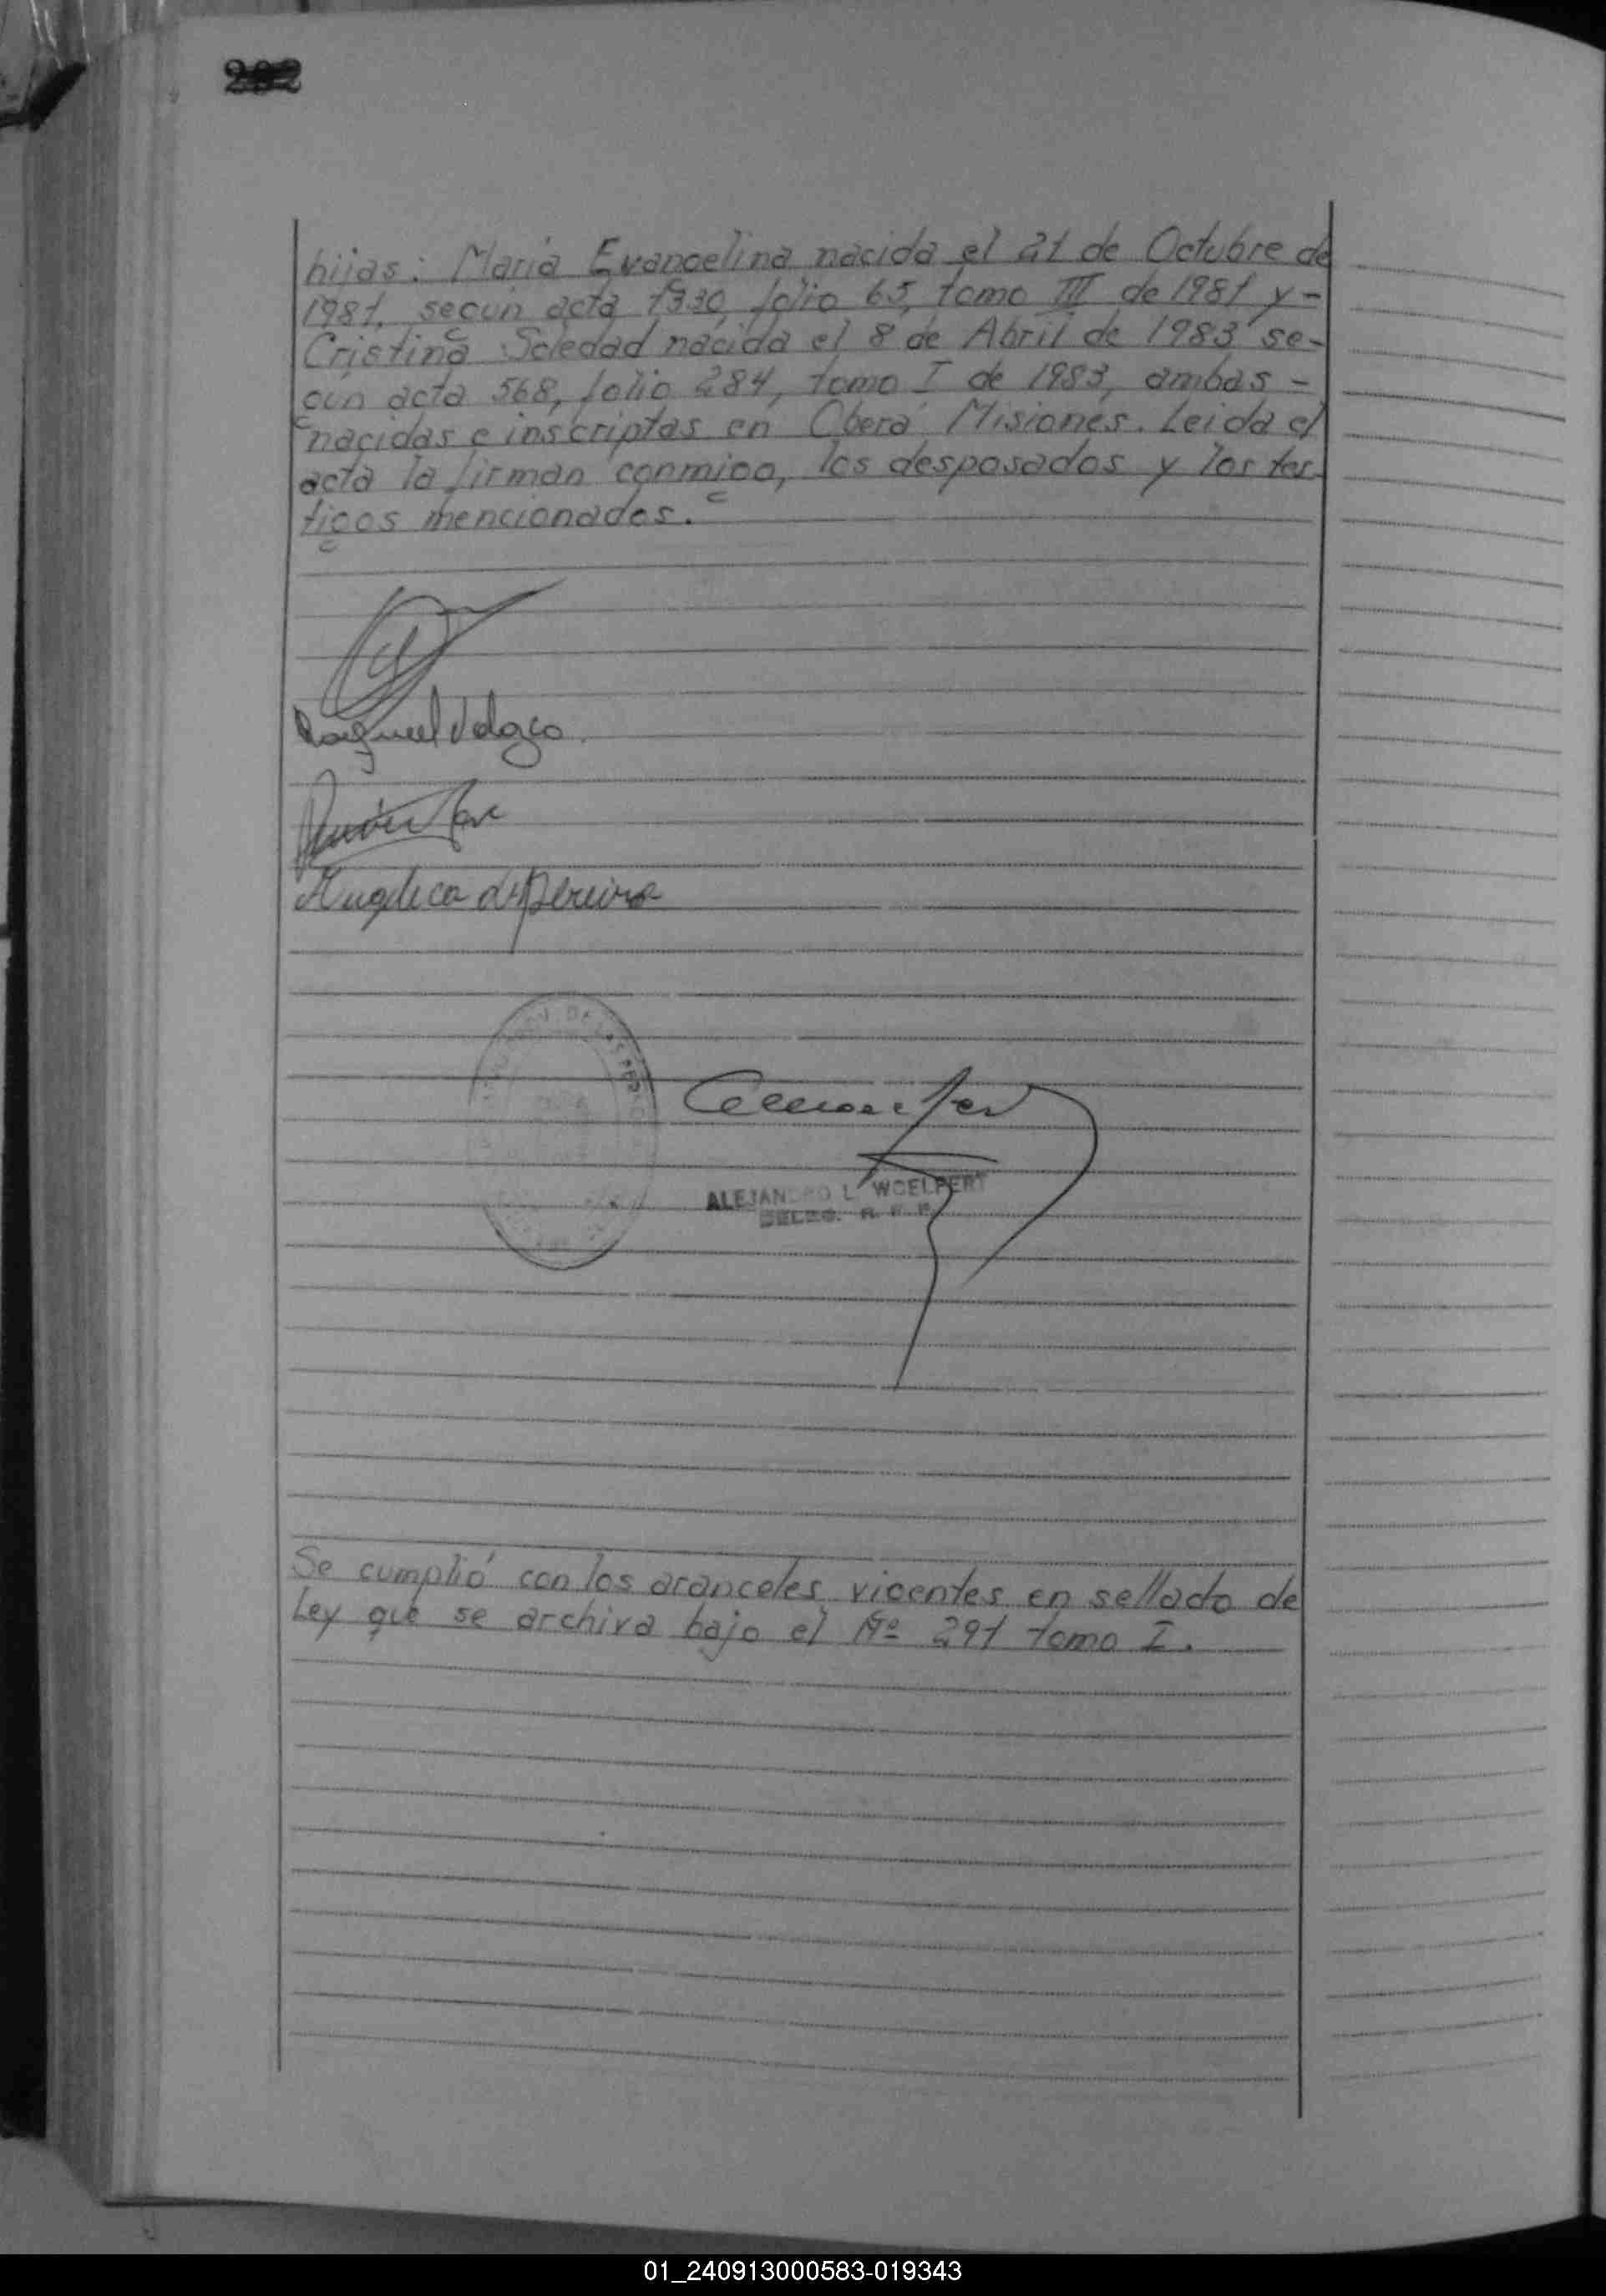 202
hijas: María Evangelina nacida el 21 de Octubre de
1981, según acta 1330, folio 65, tomo III de 1981 y-
Cristina Soledad nacida el 8 de Abril de 1983 se-
gún acta 568, folio 284, tomo I de 1983, ambas -
nacidas e inscriptas en Oberá Misiones. Leida el
acta la firman conmigo, los desposados y los tes-
tigos mencionados.
Raquel Velozo
Angelica d Pereira
ALEJANDRO L WOELPERT
DELEG. R. P. P.
Se cumplió con los aranceles vigentes en sellado de
Ley que se archiva bajo el Nº 291 tomo I.
01_240913000583-019343